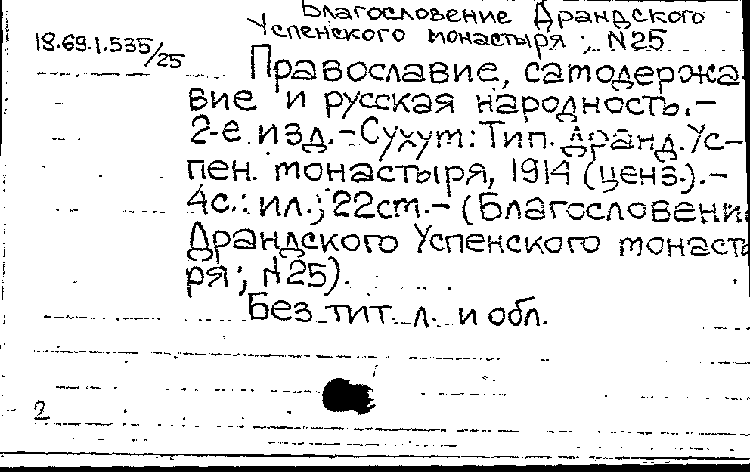 Благословение Драндского
Успенского монастыря ; N25
18.69.1.535/25
Православие, самодержа-
вие и русская народность.-
2-е изд.-Сухум: Тип. Дранд. Ус-
пен. монастыря, 1914 (ценз.).-
4с.: ил.; 22см.- (Благословение
Драндского Успенского монасты
ря ; N25).
Без тит. л. и обл.
2